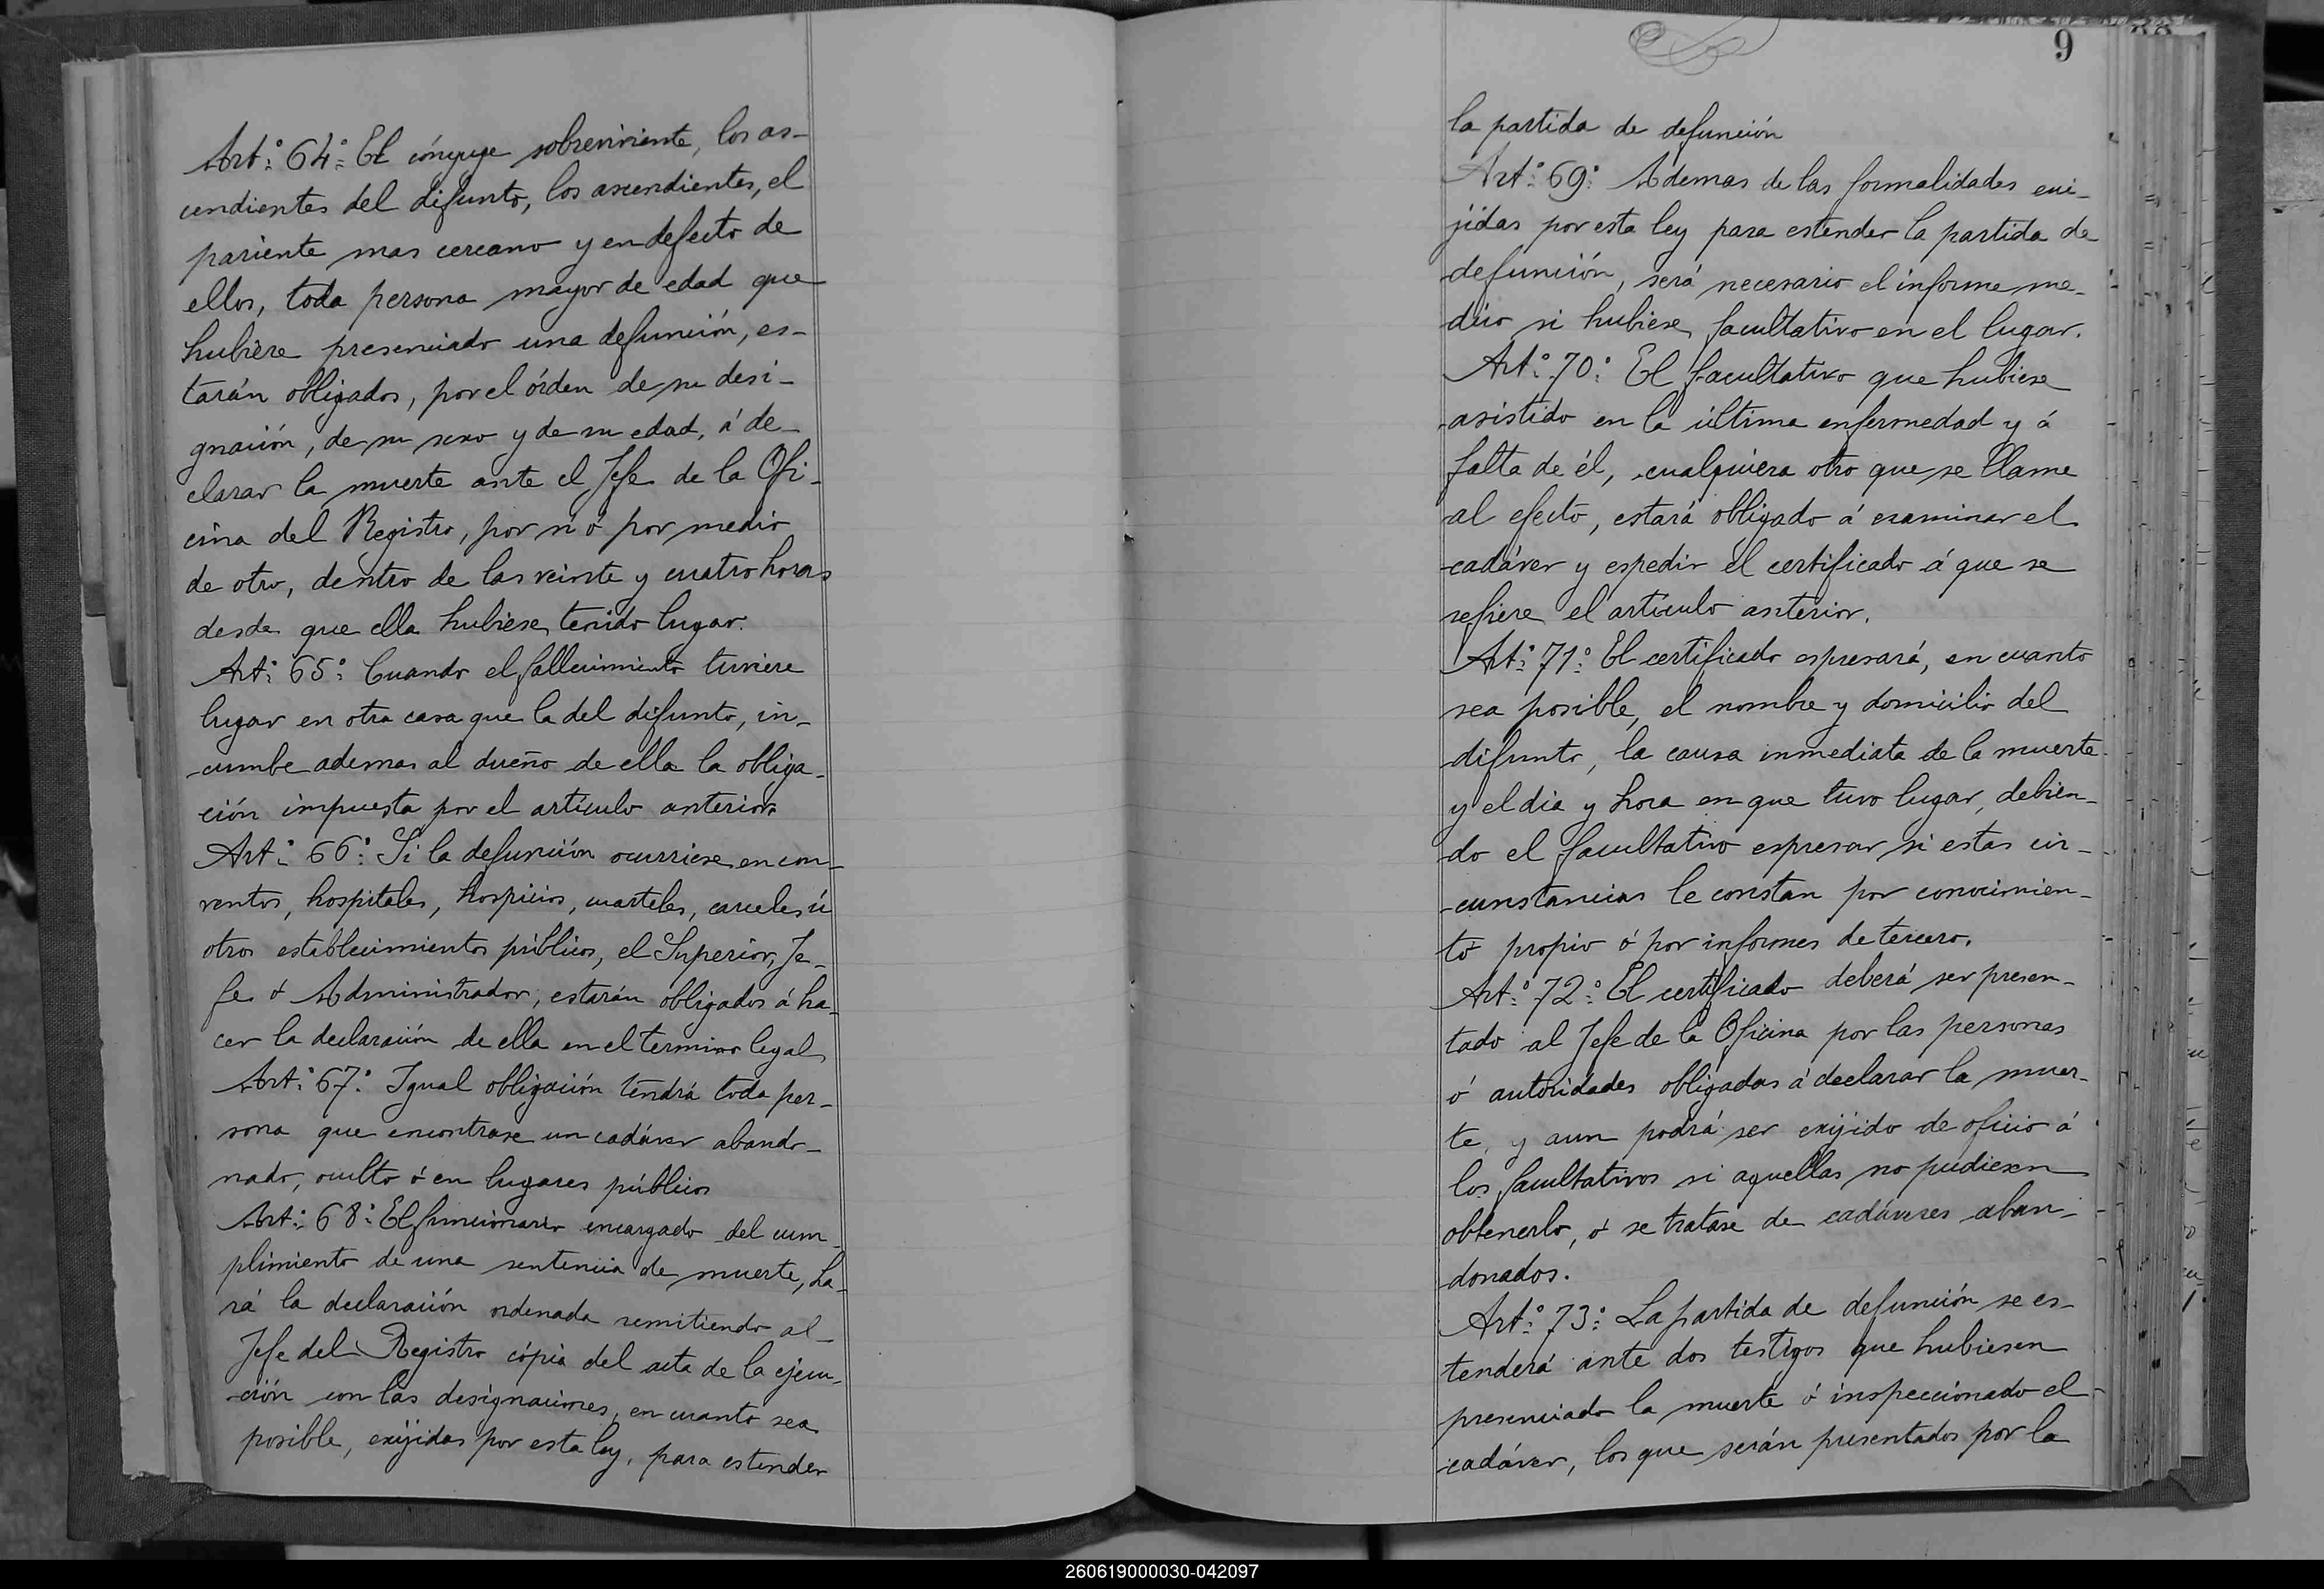 Art.º 64.º El cónyuge sobreviviente, los as-
cendientes del difunto, los ascendientes, el
pariente mas cercano y en defecto de
ellos, toda persona mayor de edad que
hubiere presenciado una defunción, es-
tarán obligados, por el órden de su desi-
gnación, de su sexo y de su edad, á de-
clarar la muerte ante el Jefe de la Ofi-
cina del Registro, por sí ó por medio
de otro, dentro de las veinte y cuatro horas
desde que ella hubiese tenido lugar.
Art.º 65.º Cuando el fallecimiento tuviere
lugar en otra casa que la del difunto, in-
cumbe ademas al dueño de ella la obliga-
ción impuesta por el artículo anterior
Art.º 66.º Si la defunción ocurriese en con-
ventos, hospitales, hospicios, cuarteles, carceles ú
otros establecimientos públicos, el Superior, Je-
fe ó Administrador, estarán obligados á ha-
cer la declaración de ella en el termino legal
Art.º 67.º Igual obligación tendrá toda per-
sona que encontrase un cadáver abando-
nado, oculto ó en lugares públicos
Art.º 68.º El funcionario encargado del cum-
plimiento de una sentencia de muerte, ha-
rá la declaración ordenada remitiendo al
Jefe del Registro cópia del acta de la ejecu-
ción con las designaciones, en cuanto sea
posible, exijidas por esta ley, para estender
9
la partida de defunción
Art.º 69.º Ademas de las formalidades exi-
jidas por esta ley para estender la partida de
defunción, será necesario el informe me-
dico si hubiese facultativo en el lugar.
Art.º 70.º El facultativo que hubiese
asistido en la última enfermedad y á
falta de él, cualquiera otro que se llame
al efecto, estará obligado á examinar el
cadáver y espedir el certificado á que se
refiere el artículo anterior.
Art.º 71.º El certificado espresará, en cuanto
sea posible, el nombre y domicilio del
difunto, la causa inmediata de la muerte
y el dia y hora en que tuvo lugar, debien-
do el facultativo espresar si estas cir-
cunstancias le constan por conocimien-
to propio ó por informes de tercero.
Art.º 72.º El certificado deberá ser presen-
tado al Jefe de la Oficina por las personas
ó autoridades obligadas á declarar la muer-
te, y aun podrá ser exijido de oficio á
los facultativos si aquellas no pudiesen
obtenerlo, ó se tratase de cadáveres aban-
donados.
Art.º 73.º La partida de defunción se es-
tenderá ante dos testigos que hubiesen
presenciado la muerte ó inspeccionado el
cadáver, los que serán presentados por la
260619000030-042097